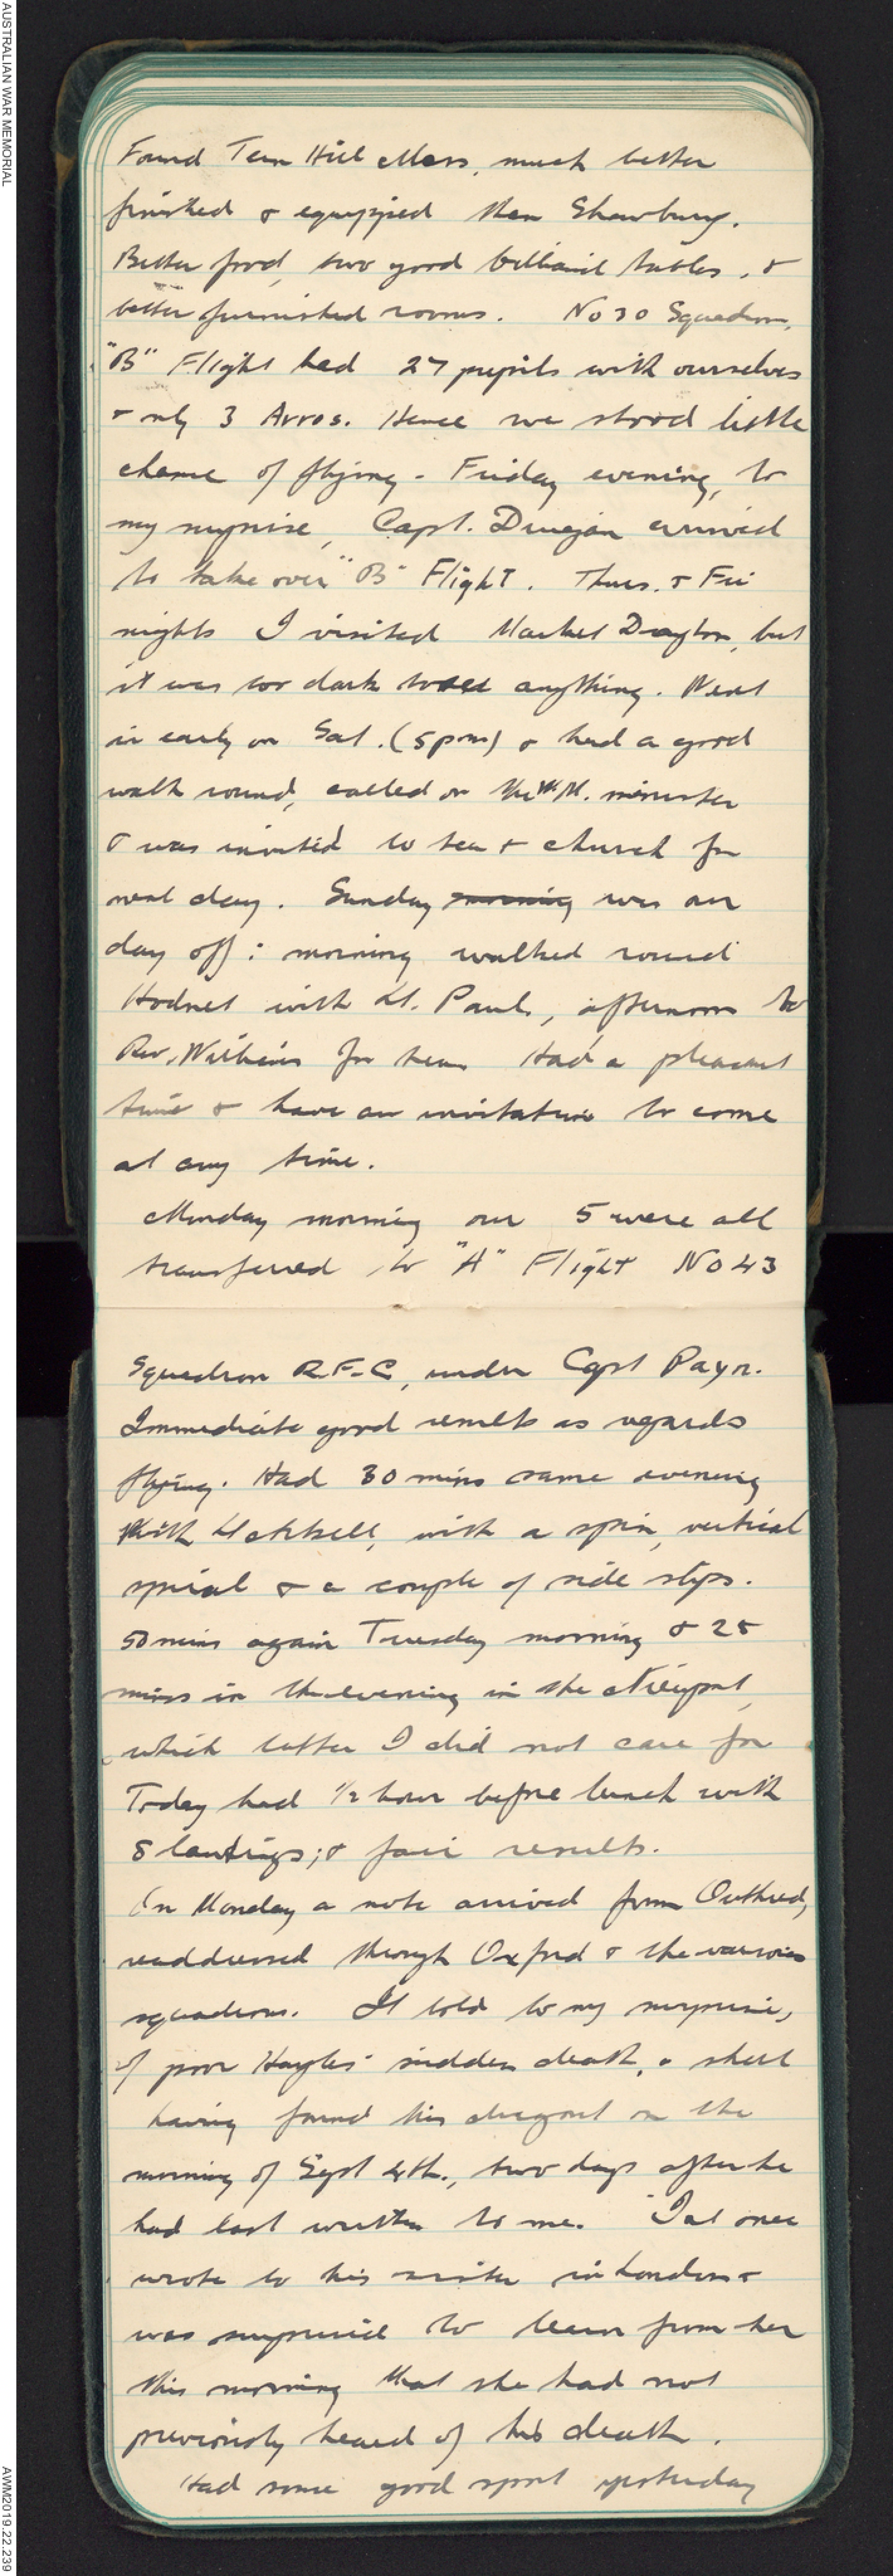 AUSTRALIAN WAR MEMORIAL
Found Tern Hill Mess, much better
finished & equipped than Shawbury.
Better food, two good billiard tables, &
better furnished rooms. No 30 Squadron,
"B" Flight had 27 pupils with ourselves
& only 3 Avros. Hence we stood little
chance of flying - Friday evening, to
my surprise, Capt. arrived
to take over "B" Flight. Thurs. & Fri
nights I visited Market Drayton, but
it was too dark to see anything. Went
in early on Sat. (5pm) & had a good
walk round, called on the W.M. minister
& was invited to tea & church for
next day. Sunday morning was our
day off: morning walked round
Hodnet with Lt. Paul, afternoon to
Rev. Wilkins for tea. Had a pleasant
time & have an invitation to come
at any time.
Monday morning our 5 were all
transferred to "A" Flight No 43
Squadron R.F.C, under Capt Payn.
Immediate good results as regards
flying. Had 30 mins same evening
with with a spin, vertical
spiral & a couple of side slips.
50 mins again Tuesday morning & 25
mins in the evening in the Nieuport,
which latter I did not care for
Today had ½ hour before lunch with
8 landings; & fair results.
On Monday a note arrived from Outhred,
readdressed through Oxford & the various
squadrons. It told to my surprise,
of poor Hayles' sudden death, a shell
having found his dugout on the
morning of Sept 4th., two days after he
had last written to me. I at once
wrote to his sister in London &
was surprised to learn from her
this morning that she had not
previously heard of his death.
Had some good sport yesterday
AWM2019.22.239